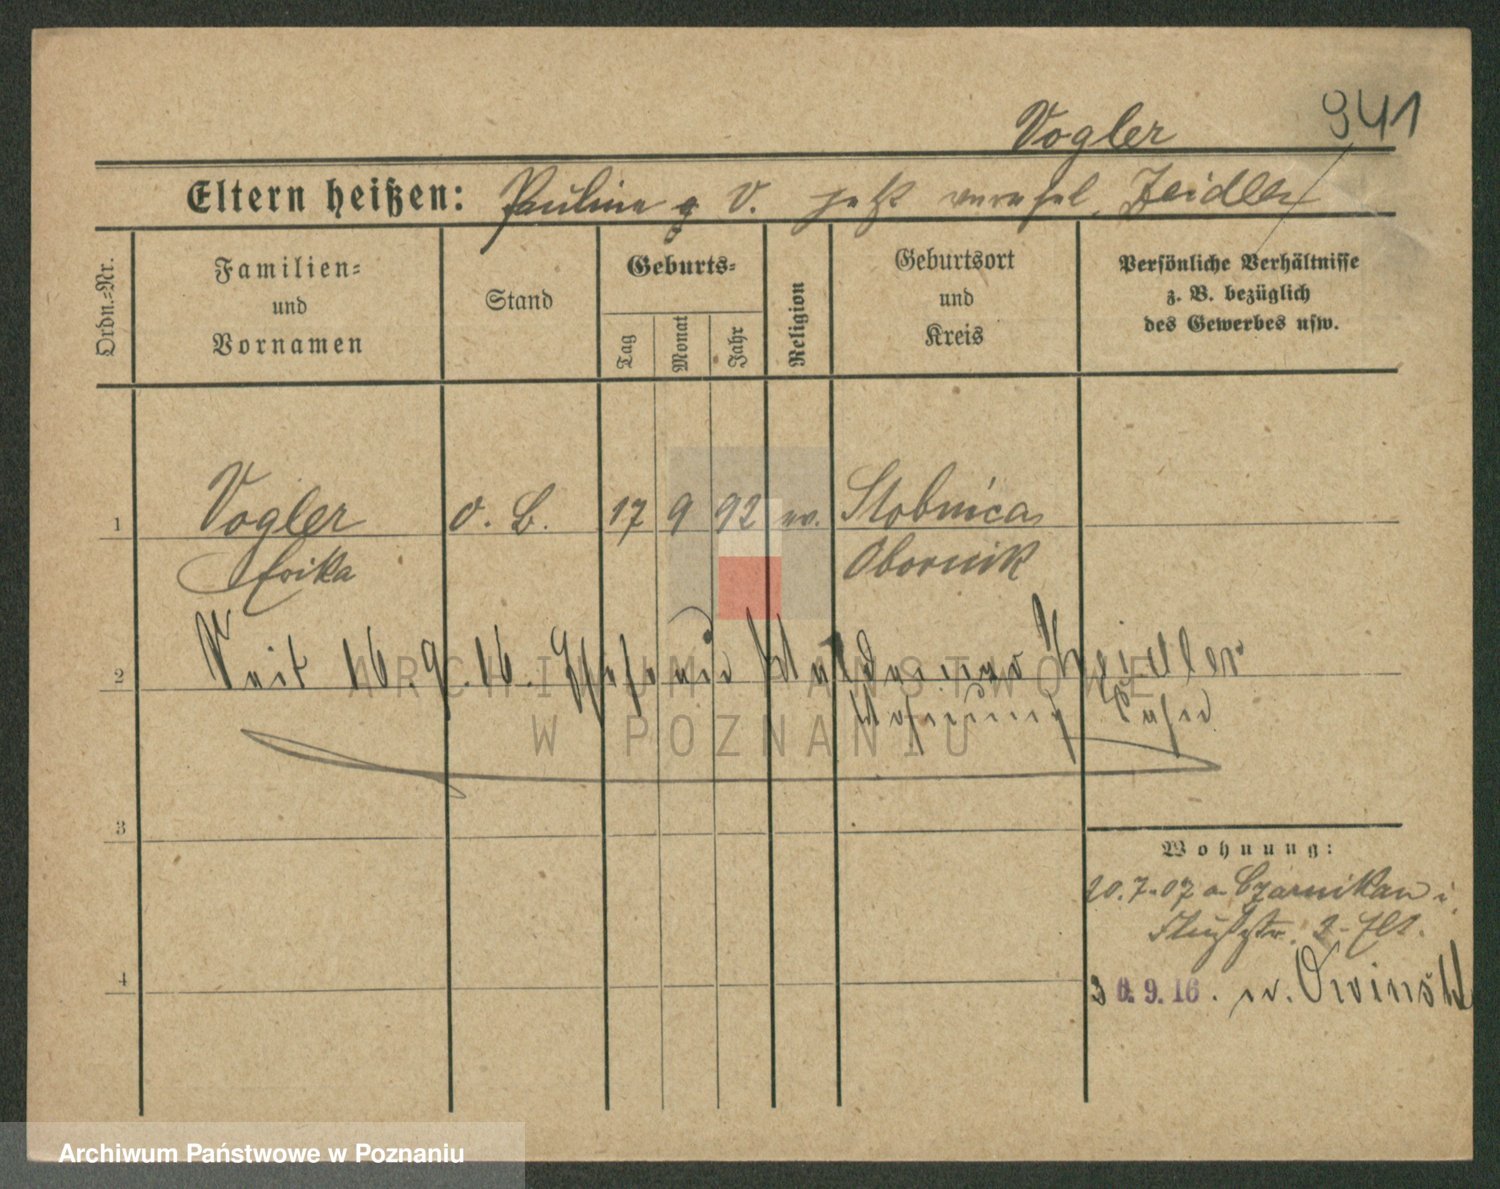 941
Vogler
Eltern heißen: Pauline g. V. jetzt verehel. Zeidler
Ordn.-Nr.
Familien-
und
Vornamen
Stand
Geburts-
Tag
Monat
Jahr
Religion
Geburtsort
und
Kreis
Persönliche Verhältnisse
z. B. bezüglich
des Gewerbes usw.
1 Vogler o. B. 17 9 92 ev. Stobnica
Erika Obornik
2 Seit 16.9.16. Zeidler
3
Wohnung:
20.7.07 a. Czarnikau i.
4
30.9.16.
ARCHIWUM PAŃSTWOWE
W POZNANIU
Archiwum Państwowe w Poznaniu